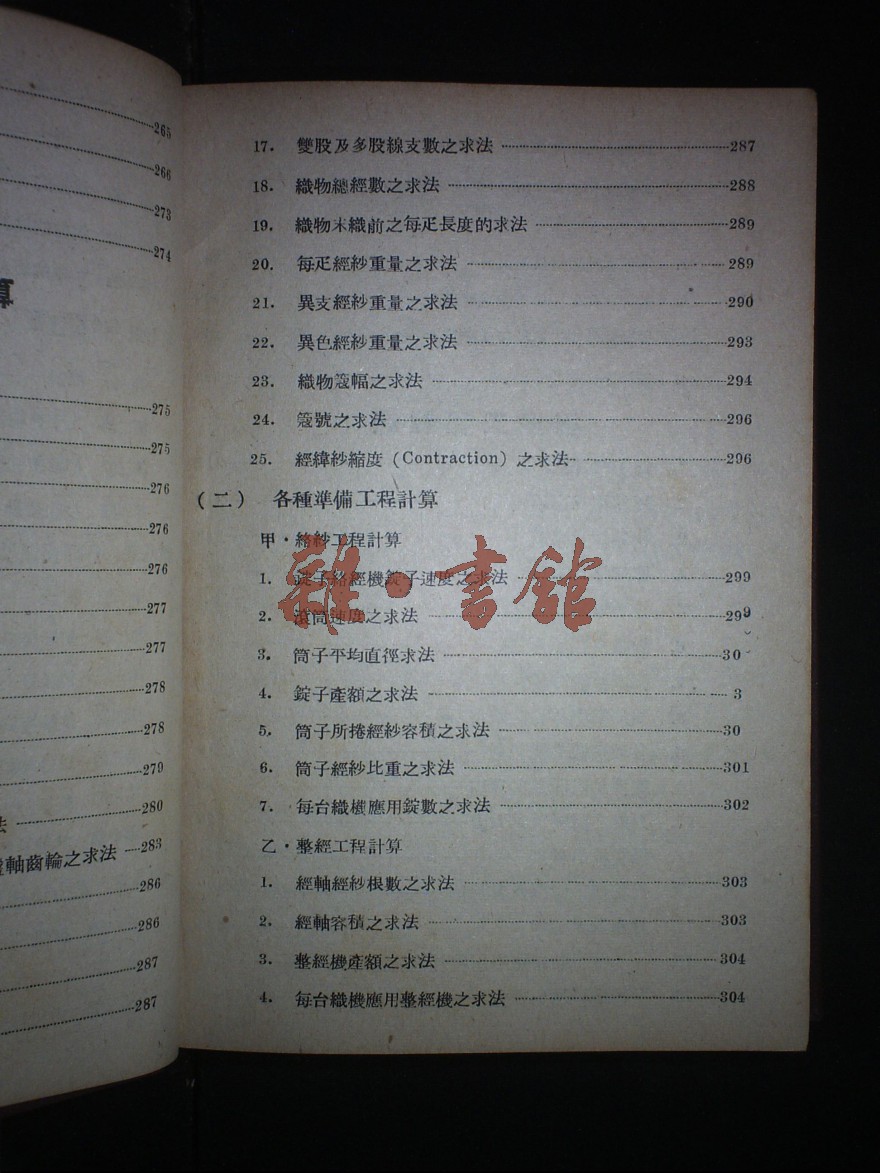 265
266
273
274
算
275
275
276
276
276
277
277
278
278
279
法 280
軸齒輪之求法 283
286
286
287
287
17. 雙股及多股線支數之求法 287
18. 織物總經數之求法 288
19. 織物未織前之每疋長度的求法 289
20. 每疋經紗重量之求法 289
21. 異支經紗重量之求法 290
22. 異色經紗重量之求法 293
23. 織物筬幅之求法 294
24. 筬號之求法 296
25. 經緯紗縮度 (Contraction) 之求法 296
(二) 各種準備工程計算
甲・絡紗工程計算
1. 錠子絡經機錠子速度之求法 299
2. 滾筒速度之求法 299
3. 筒子平均直徑求法 30
4. 錠子產額之求法 3
5. 筒子所捲經紗容積之求法 30
6. 筒子經紗比重之求法 301
7. 每台織機應用錠數之求法 302
乙・整經工程計算
1. 經軸經紗根數之求法 303
2. 經軸容積之求法 303
3. 整經機產額之求法 304
4. 每台織機應用整經機之求法 304
雜・書館